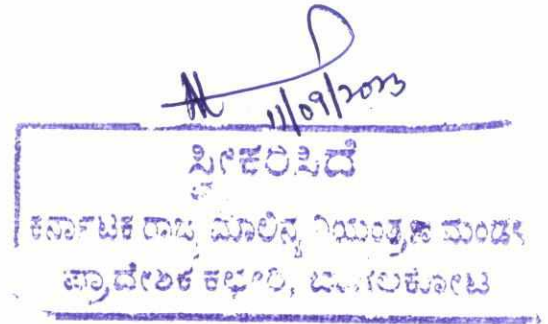 11/09/2023
ಸ್ವೀಕರಿಸಿದೆ
ಕರ್ನಾಟಕ ರಾಜ್ಯ ಮಾಲಿನ್ಯ ನಿಯಂತ್ರಣ ಮಂಡಳಿ
ಪ್ರಾದೇಶಿಕ ಕಛೇರಿ, ಬಾಗಲಕೋಟ